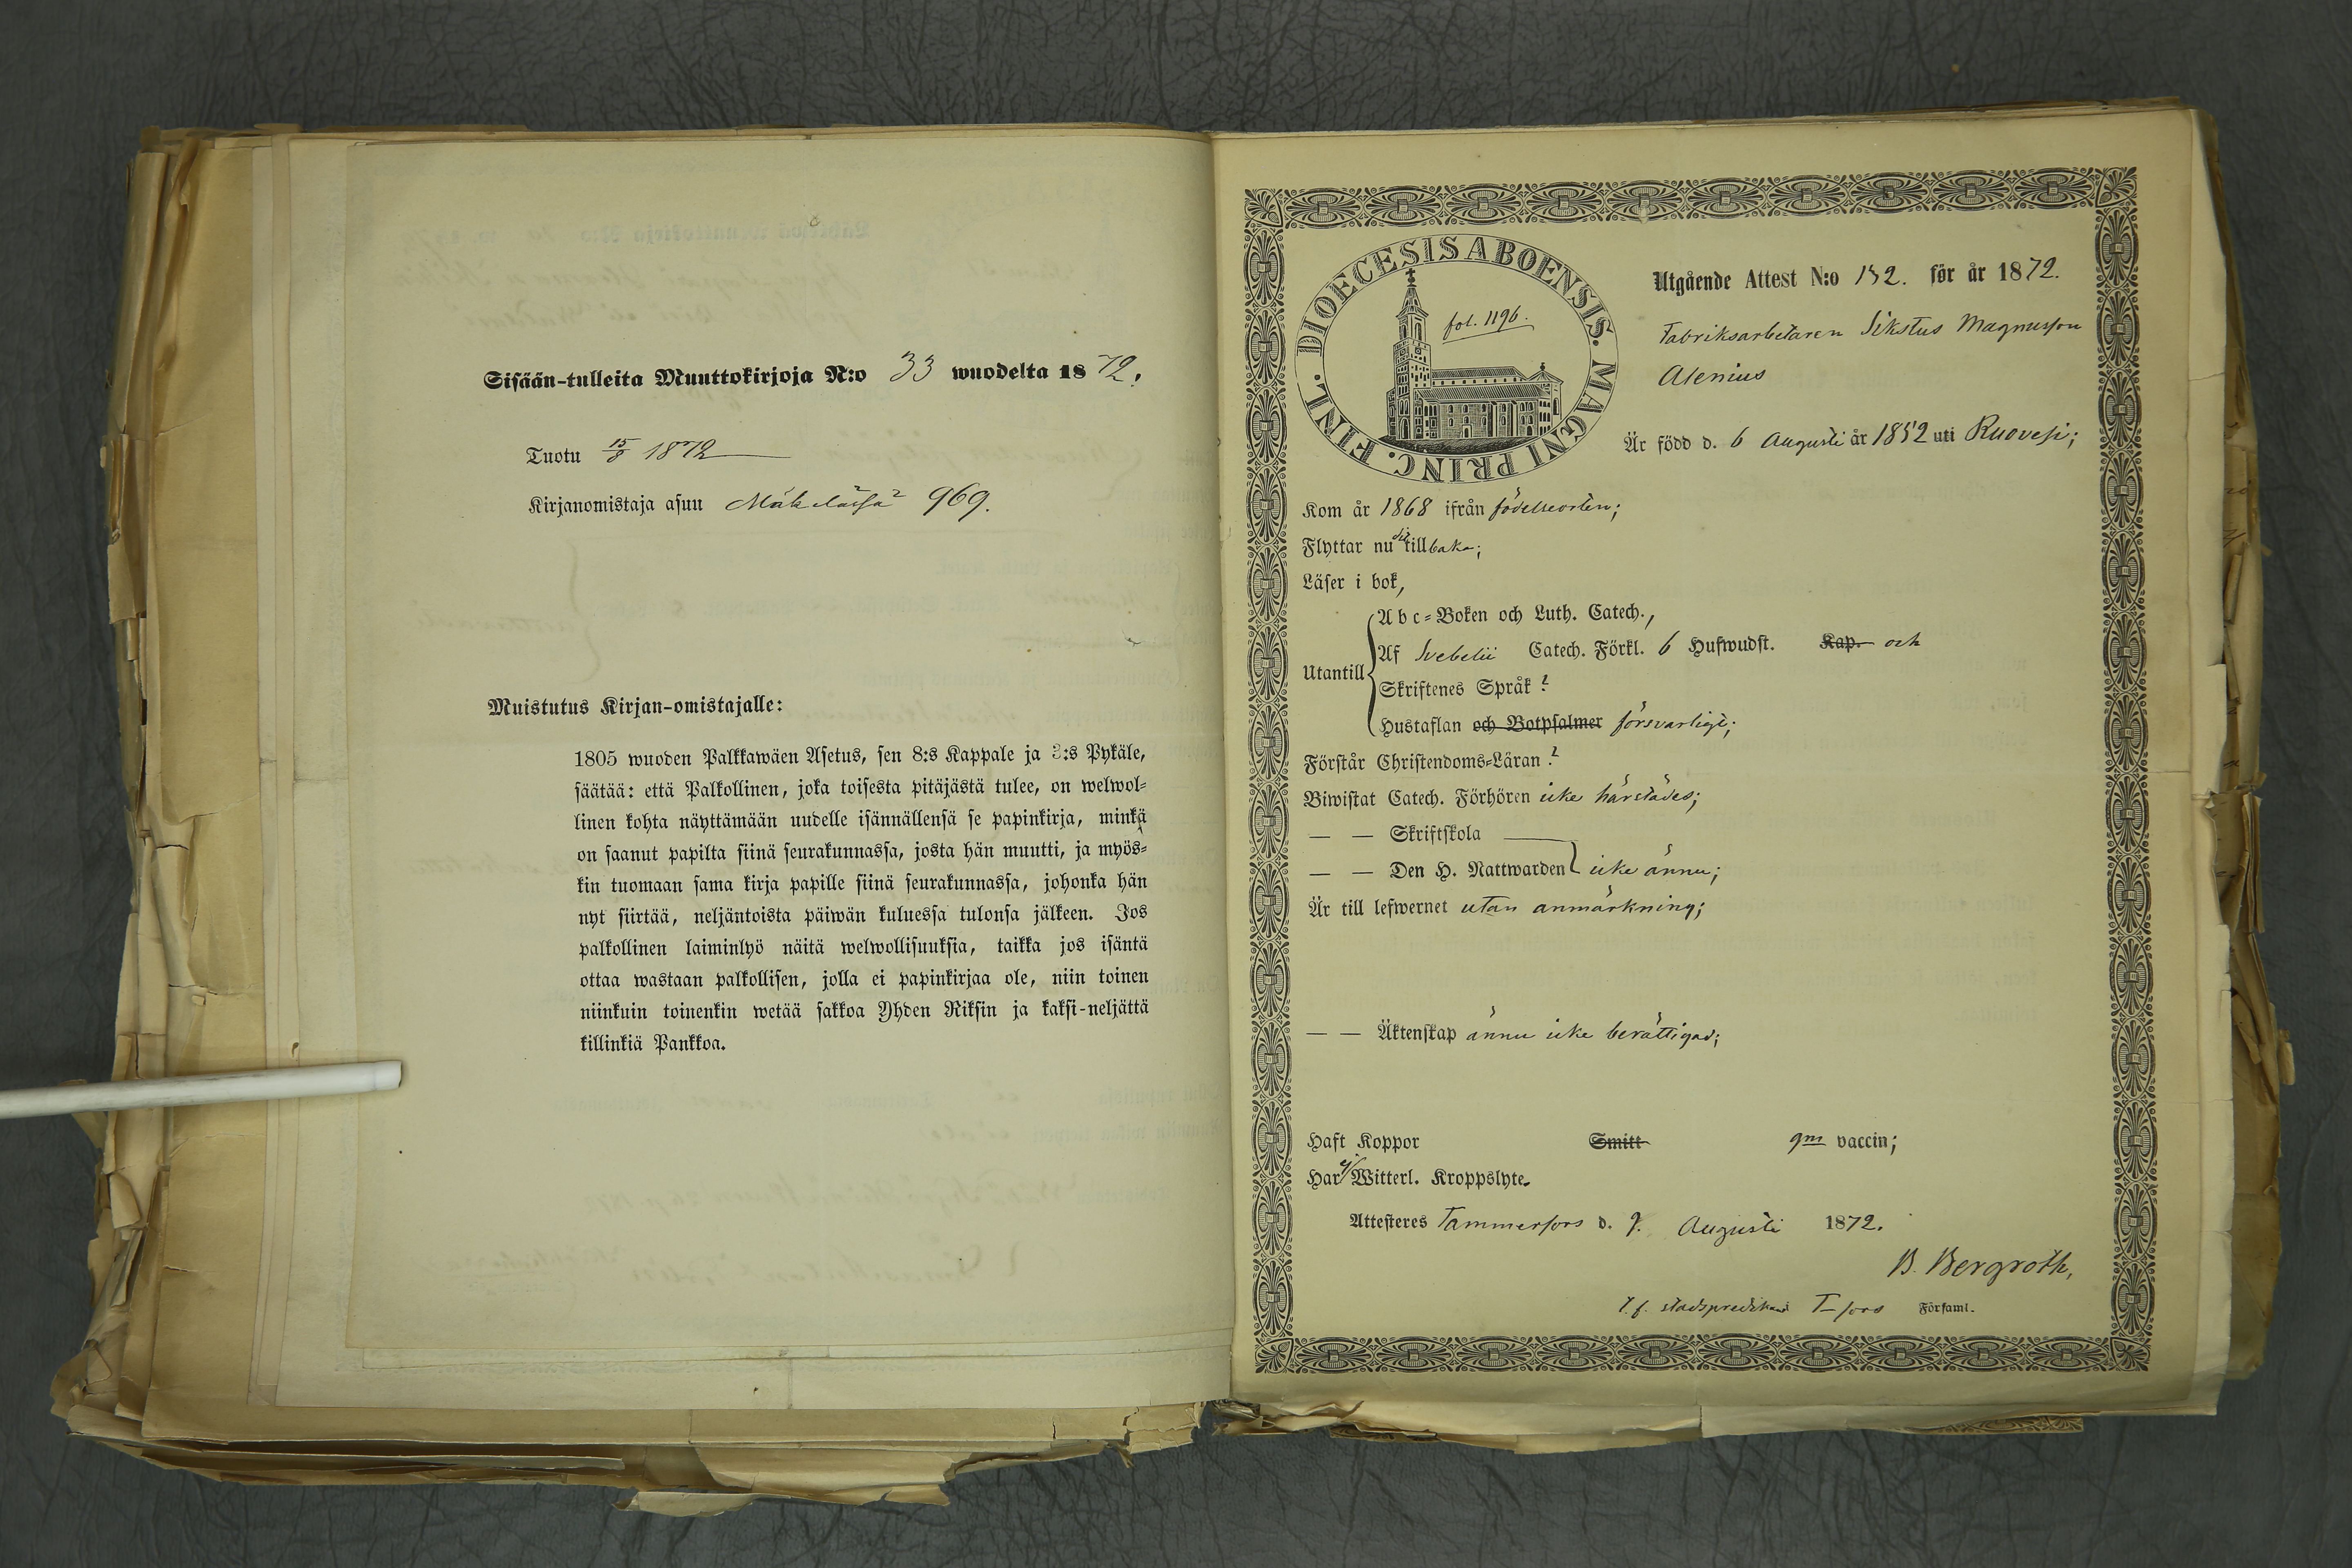 Sisään-tulleita Muuttokirjoja N:o 33 wuodelta 1872.
Tuotu 15/8 1872
Kirjanomistaja asuu 969.
Muistutus Kirjan-omistajalle:
1805 wuoden Palkkawäen Asetus, sen 8:s Kappale ja 3:s Pykäle,
säätää: että Palkollinen, joka toisesta pitäjästä tulee, on welwol-
linen kohta näyttämään uudelle isännällensä se papinkirja, minkä
on saanut papilta siinä seurakunnassa, josta hän muutti, ja myös-
kin tuomaan sama kirja papille siinä seurakunnassa, johonka hän
nyt siirtää, neljäntoista päiwän kuluessa tulonsa jälkeen. Jos
palkollinen laiminlyö näitä welwollisuuksia, taikka jos isäntä
ottaa wastaan palkollisen, jolla ei papinkirjaa ole, niin toinen
niinkuin toinenkin wetää sakkoa Yhden Riksin ja kaksi-neljättä
killinkiä Pankkoa.
DIOECESIS ABOENSIS. MAGNI PRINC. FINL.
fol. 1196.
Utgående Attest N:o 132. för år 1872.
Fabriksarbetaren Sikstus Magnusson
Alenius
Är född d. 6 Augusti år 1852 uti Ruovesi;
Kom år 1868 ifrån födelseorten;
Flyttar nu dit tillbaka;
Läser i bok,
Utantill
Abc-Boken och Luth. Catech.,
Af Svebelii Catech. Förkl. 6 Hufwudst. Kap. och
Skriftenes Språk?
Hustaflan och Botpsalmer försvarligt;
Förstår Christendoms-Läran?
Biwistat Catech. Förhören icke härstädes;
— — Skriftskola
— — Den H. Nattwarden icke ännu;
Är till lefwernet utan anmärkning;
— — Äktenskap ännu icke berättigad;
Haft Koppor Smitt gm vaccin;
Har ej Witterl. Kroppslyte.
Attesteres Tammerfors d. 9. Augusti 1872.
B. Bergroth,
T. f. stadspredikant T-fors Församl.